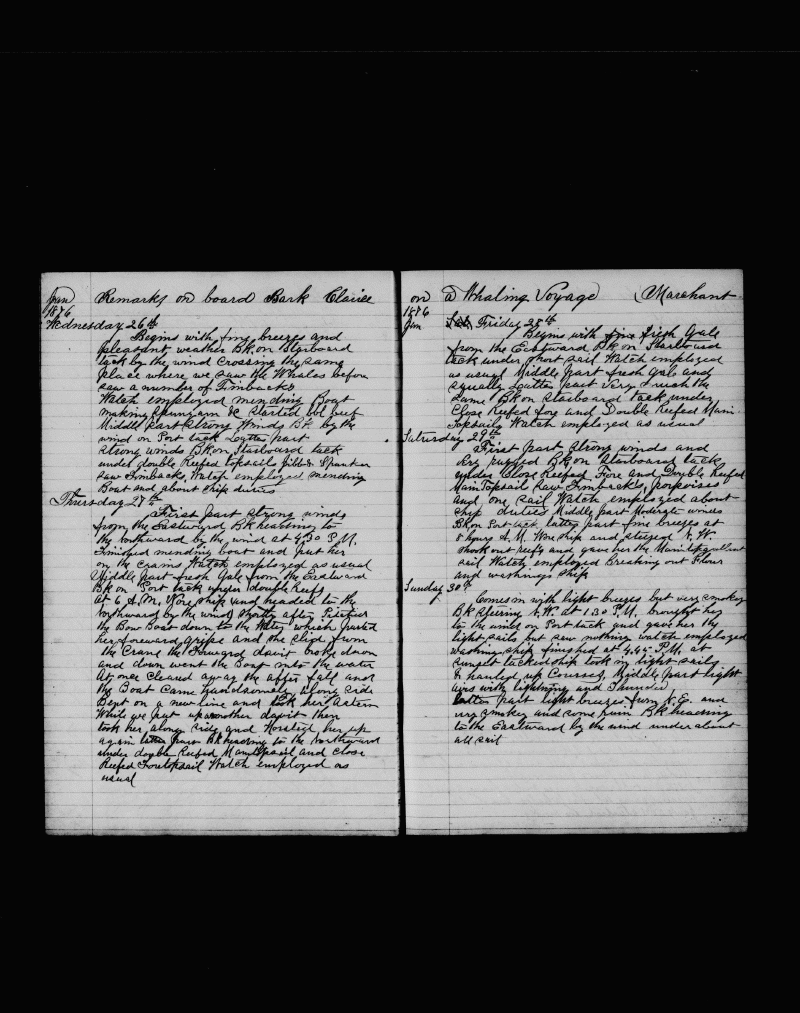 Jan 1876 Remarks on board Bark Clarice
Wednesday 26th
Begins with fine breezes and
pleasant weather Bk on Starboard
tack by the wind Crossing the same
place where we saw the Whales before
saw a number of Finbacks
Watch employed mending Boat
making Spunyarn &c Started bbl beef
Middle part strong Winds Bk by the
wind on Port tack Latter part
strong winds Bk on Starboard tack
under double Reefed topsails jibb & Spanker
saw Finbacks Watch employed mending
Boat and about ship duties
Thursday 27th
First part strong winds
from the Eastward Bk heading to
the Northward by the wind at 4.30 P.M.
Finished mending boat and put her
on the Crains Watch employed as usual
Middle part fresh Gale from the Eastward
Bk on Port tack under double reefs
at 6 A.M. Wore ship and headed to the
Northward by the wind shortly after
the Bow Boat down to the Water which parted
her foreward gripe and she slid from
the Crane the Forward davit broke down
and down went the Boat into the water
At once cleared away the after fall and
the Boat Came handsomely along side
Bent on a new line and took her astern
While we put up another davit then
took her along side and Hoisted her up
again latter part Bk heading to the Northward
under double Reefed Maintopsail and close
Reefed Foretopsail Watch employed as
usual
on a Whaling Voyage Marchant
1876
Jan Friday 28th
Begins with fresh Gale
from the Eastward Bk on Starboard
tack under short sail Watch employed
as usual Middle part fresh Gale and
squally Latter part Very Much the
same Bk on Starboard tack under
Close Reefed fore and Double Reefed Main
Topsails Watch employed as usual
Saturday 29th
First part strong winds and
very rugged Bk on Starboard tack
under Close Reefed Fore and Double Reefed
Main Topsail Saw Finbacks porpoises
and one sail Watch employed about
ship duties Middle part Moderate winds
Bk on Port tack latter part fine breezes at
8 hours A.M. Wore ship and steered N.W.
shook out reefs and gave her the Maintopgallant
sail Watch employed Breaking out Flour
and washing ship
Sunday 30th
Comes in with light breezes but very smokey
Bk steering N.W. at 1.30 P.M. brought her
to the wind on Port tack and gave her the
light sails but saw nothing watch employed
washing ship finished at 4.45 P.M. at
sunset tacked ship took in light sails
& hauled up Courses Middle part light
airs with lightning and Thunder
latter part light breezes from N.E. and
very smokey and some rain Bk heading
to the Eastward by the wind under about
all sail